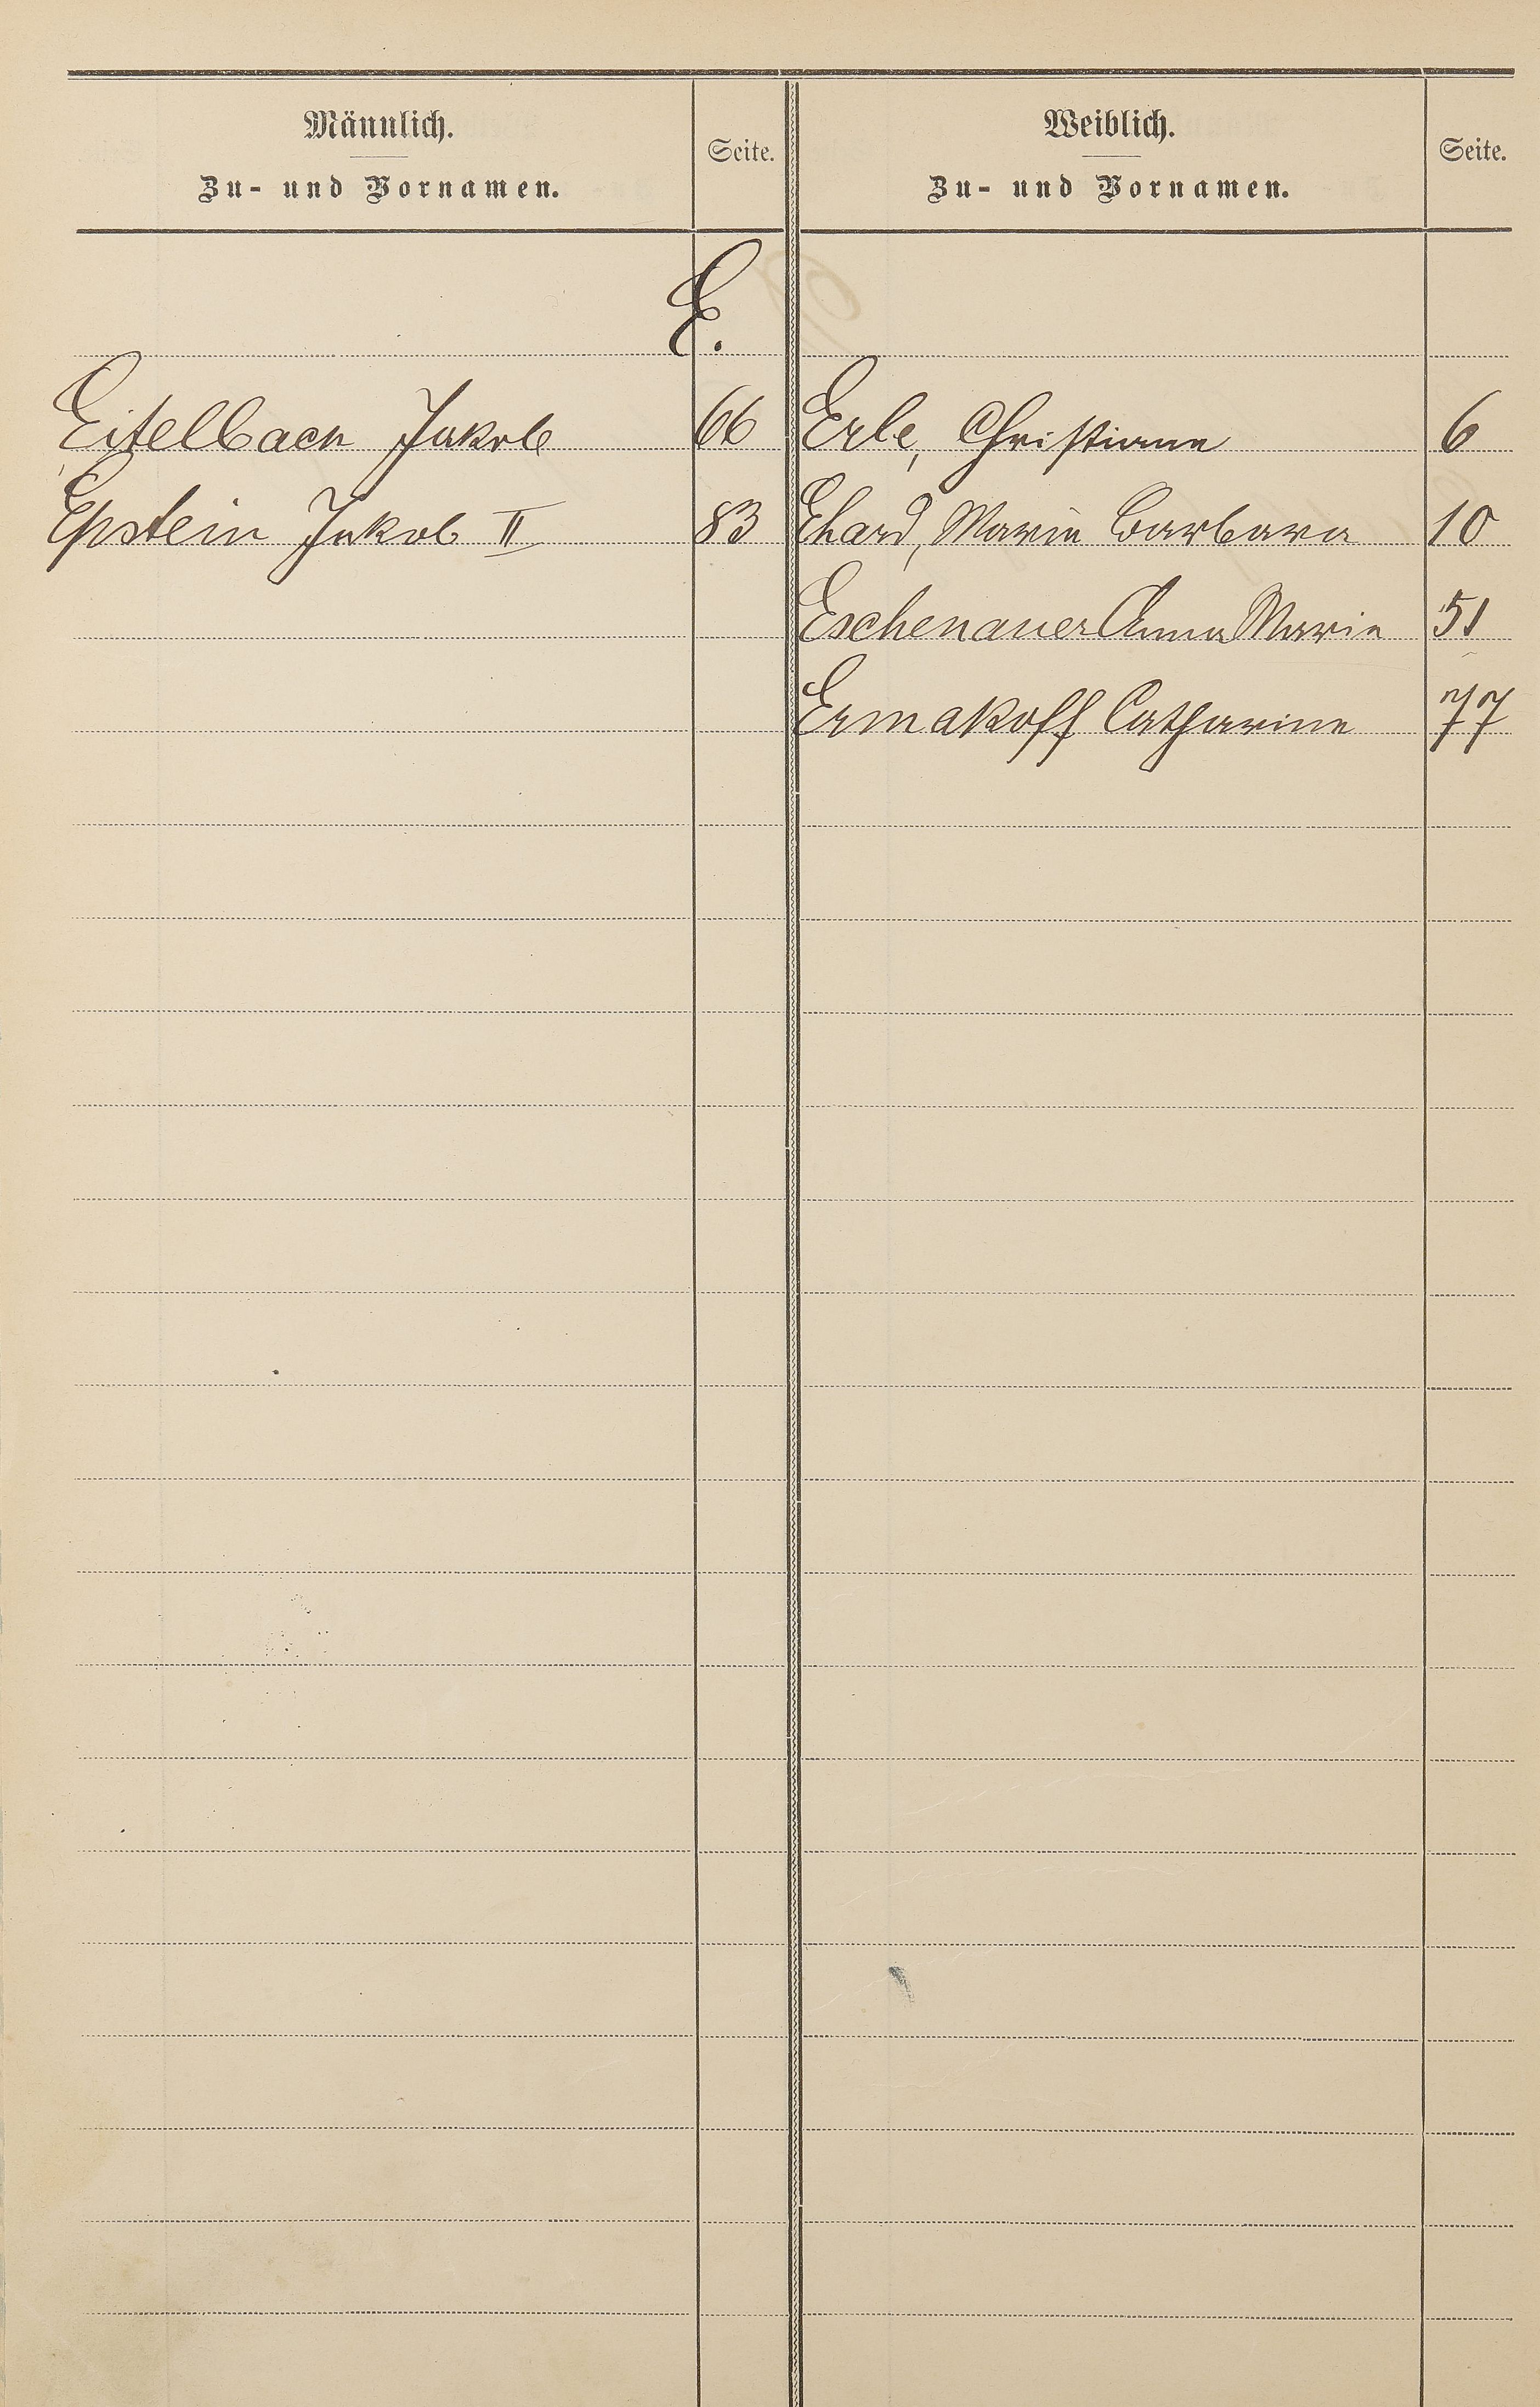 Männlich.
Zu- und Vornamen.
Seite.
Weiblich.
Zu- und Vornamen.
Seite.
E.
Eitelbach Jakob 66
Epstein Jakob II 83
Erle, Christiane 6
Ehard, Marie Barbara 10
Eschenauer Anna Marie 51
Ermakoff Catharine 77